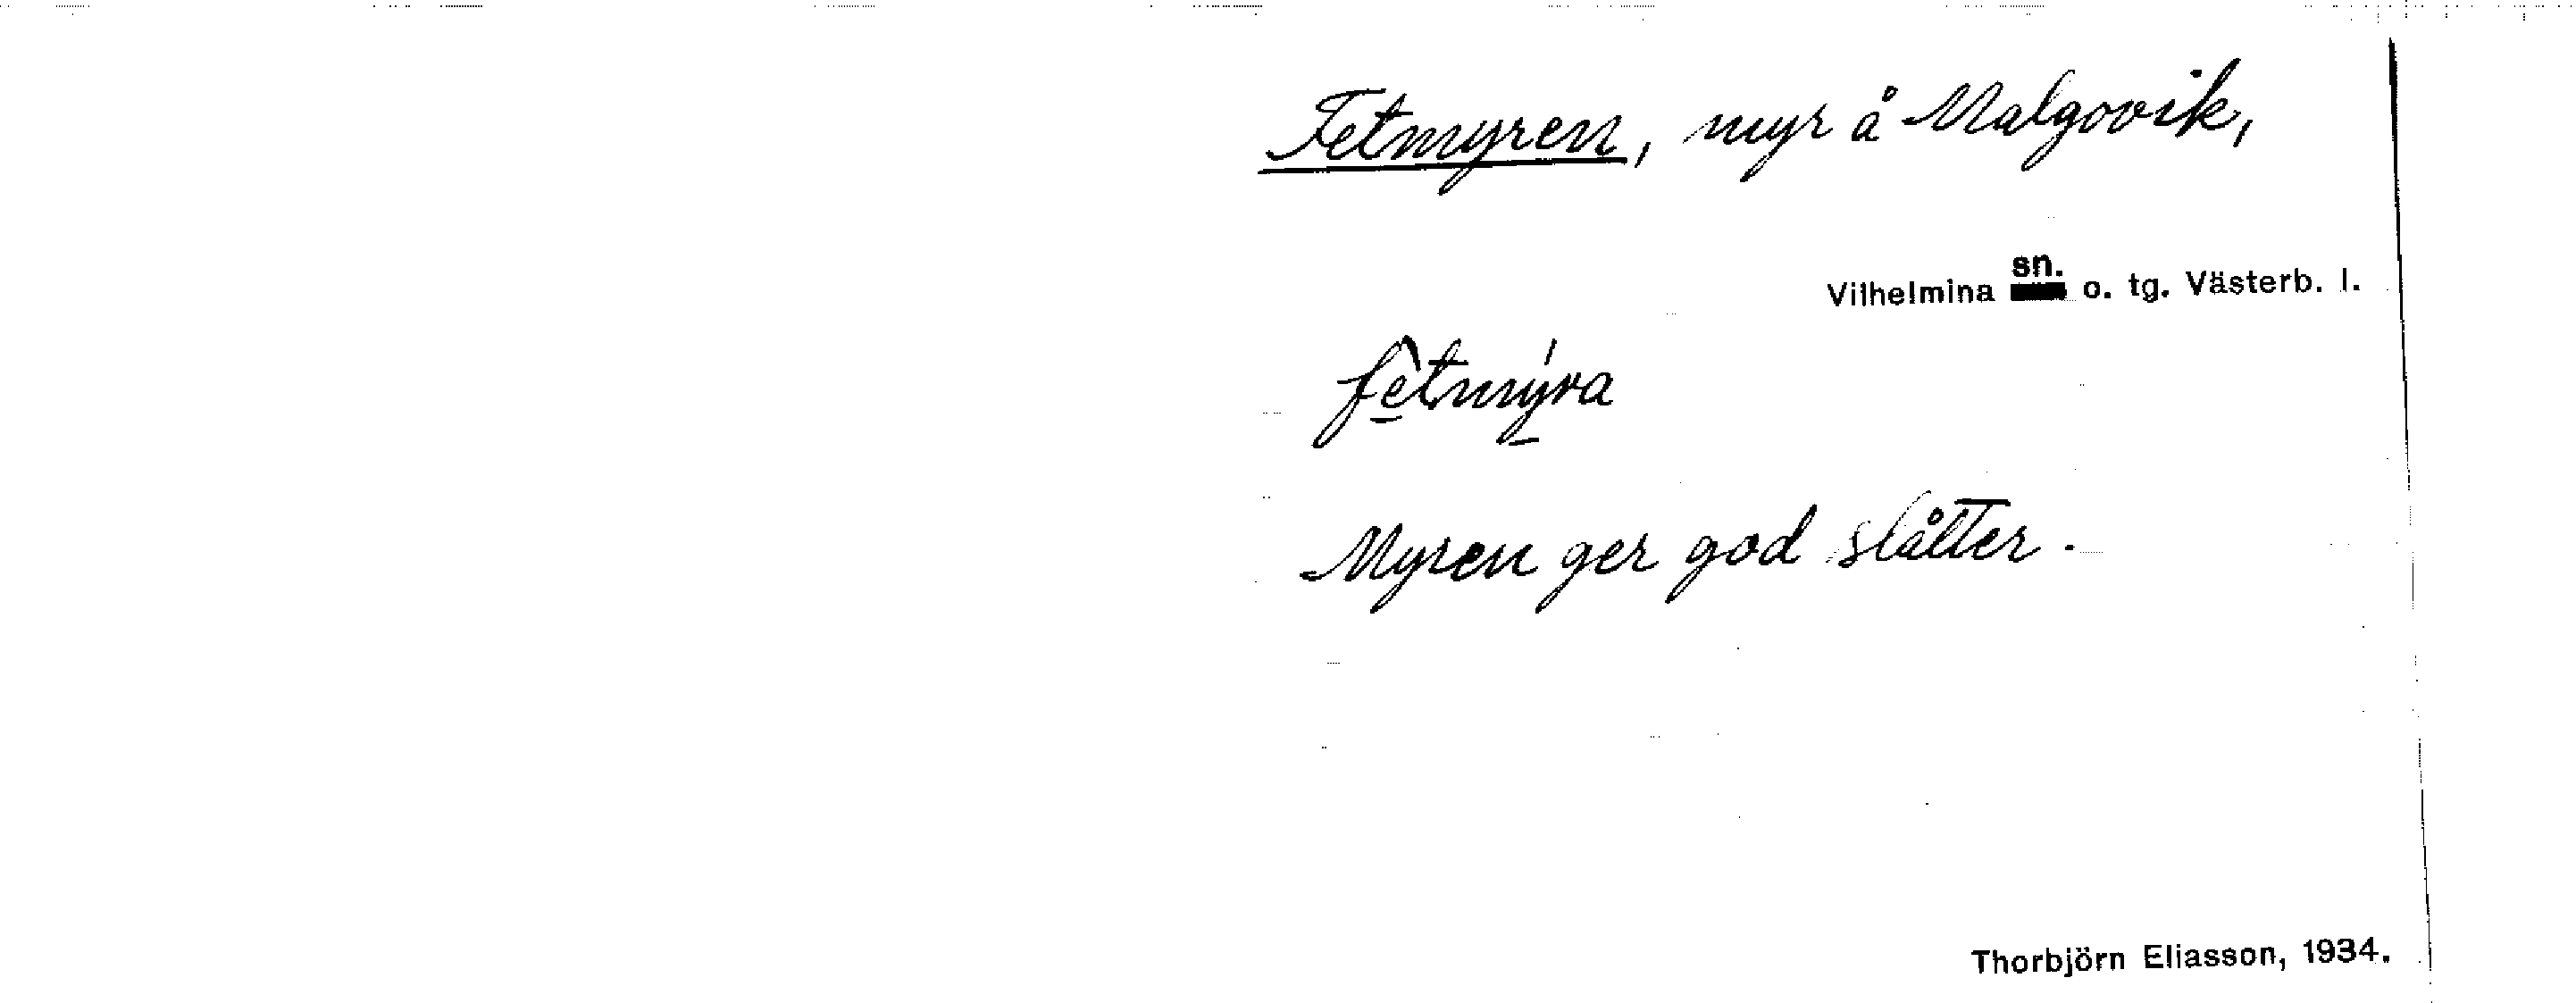 Fetmyren, myr å Malgovik,
Vilhelmina sn. o. tg. Västerb. l.
fê̠tmý̠ra
Myren ger god slåtter.
Thorbjörn Eliasson, 1934.